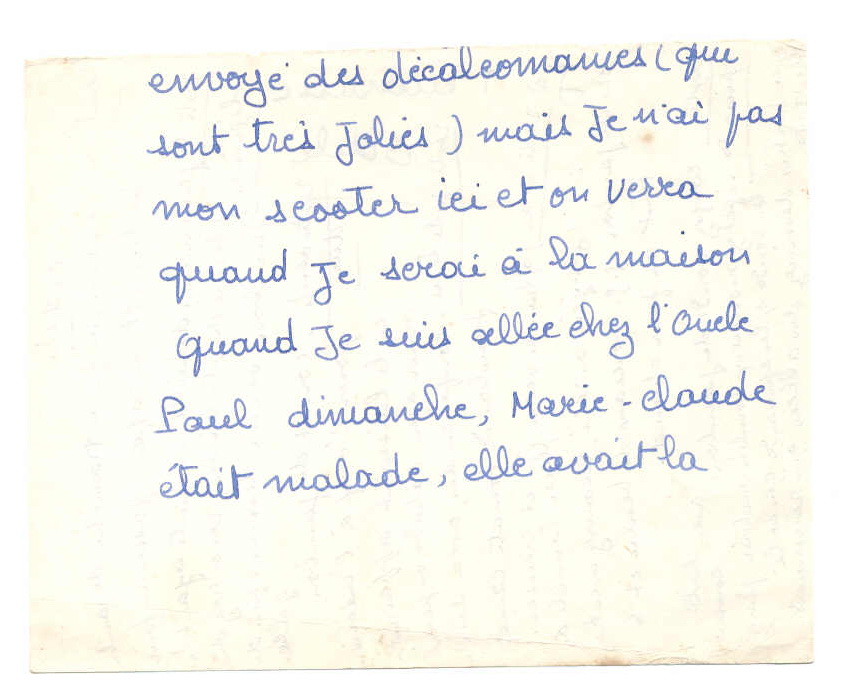 envoyé des décalcomanies (qui
sont très Jolies) mais Je n'ai pas
mon scooter ici et on verra
quand Je serai à la maison
Quand Je suis allée chez l'Oncle
Paul dimanche, Marie-claude
était malade, elle avait la